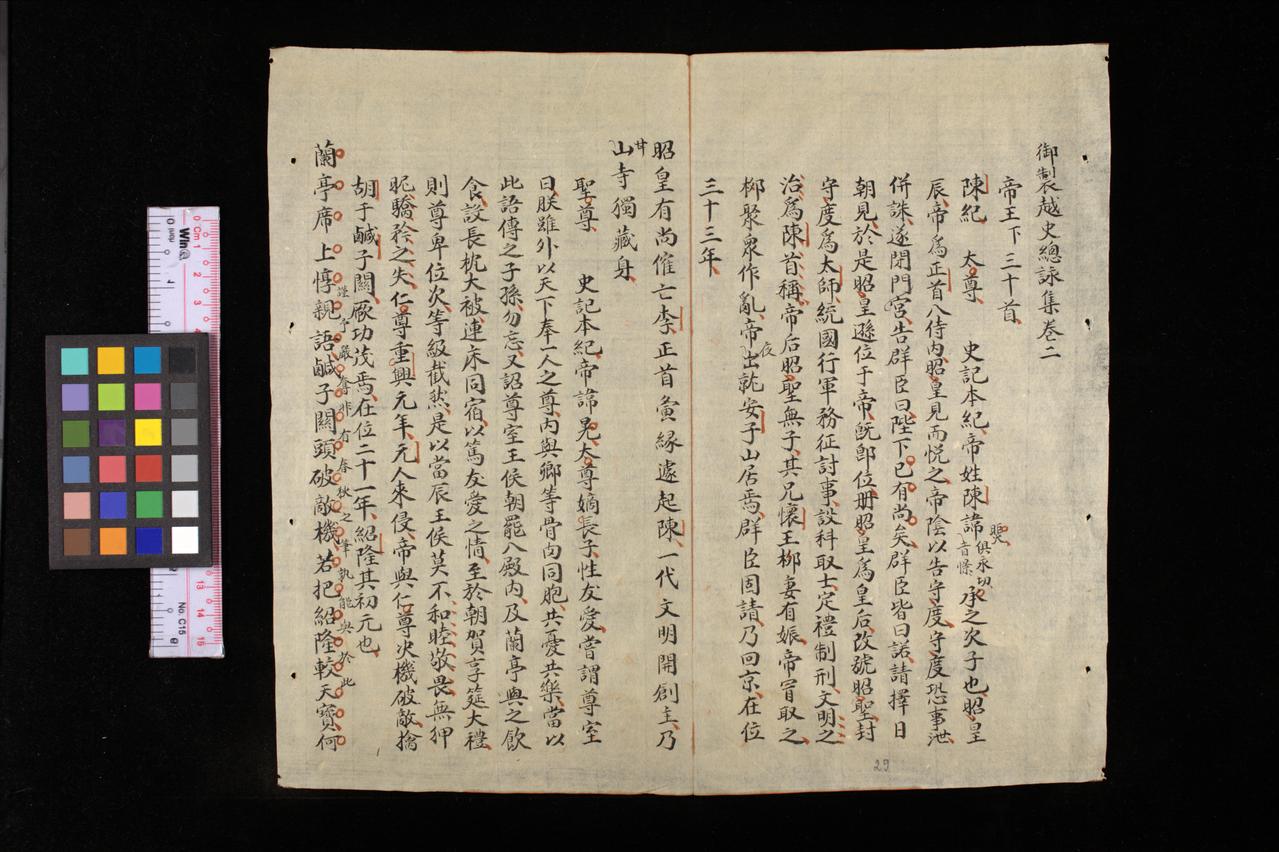 御製越史總詠集卷二
帝王下 三十首
陳紀 太尊 史記本紀帝姓陳諱煚俱永切音憬承之次子也昭皇
辰帝爲正首入侍内昭皇見而悅之帝陰以告守度守度恐事泄
併誅遂閉門宮告群臣曰陛下已有尚矣群臣皆曰諾請擇日
朝見於是昭皇遜位于帝既卽位册昭皇爲皇后改號昭聖封
守度爲太師統國行軍務征討事設科取士定禮制刑文明之
治爲陳首稱帝后昭聖無子其兄懷王柳妻有娠帝冒取之
柳聚衆作亂帝夜出就安子山居焉群臣固請乃回京在位
三十三年
昭皇有尚催亡李正首夤緣遽起陳一代文明開創主乃
甘山寺獨藏身
聖尊 史記本紀帝諱晃太尊嫡長子性友愛嘗謂尊室
曰朕雖外以天下奉一人之尊内與卿等骨肉同胞共憂共樂當以
此語傳之子孫勿忘又詔尊室王侯朝罷入殿内及蘭亭與之飲
食設長枕大被連床同宿以篤友愛之情至於朝賀享筵大禮
則尊卑位次等級截然是以當辰王侯莫不和睦敬畏無狎
昵驕矜之失仁尊重興元年元人來侵帝與仁尊决機破敵擒
胡于鹹子關厥功茂焉在位二十一年紹隆其初元也
蘭亭席上惇親語鹹子關頭破敵機若把紹隆較天寶何
謹予嚴奪非有春秋之筆孰能與於此
29
Win
Cm 1
2
3
4
13
14
15
No. C15